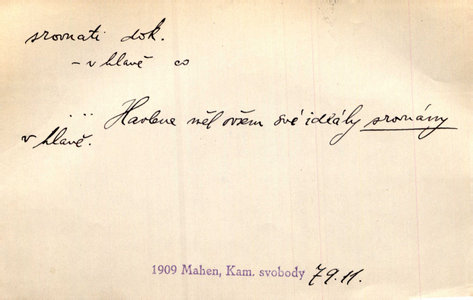 srovnati dok.
- v hlavě co
... Havlena měl ovšem své ideály srovnány
v hlavě.
1909 Mahen, Kam. svobody 79.11.